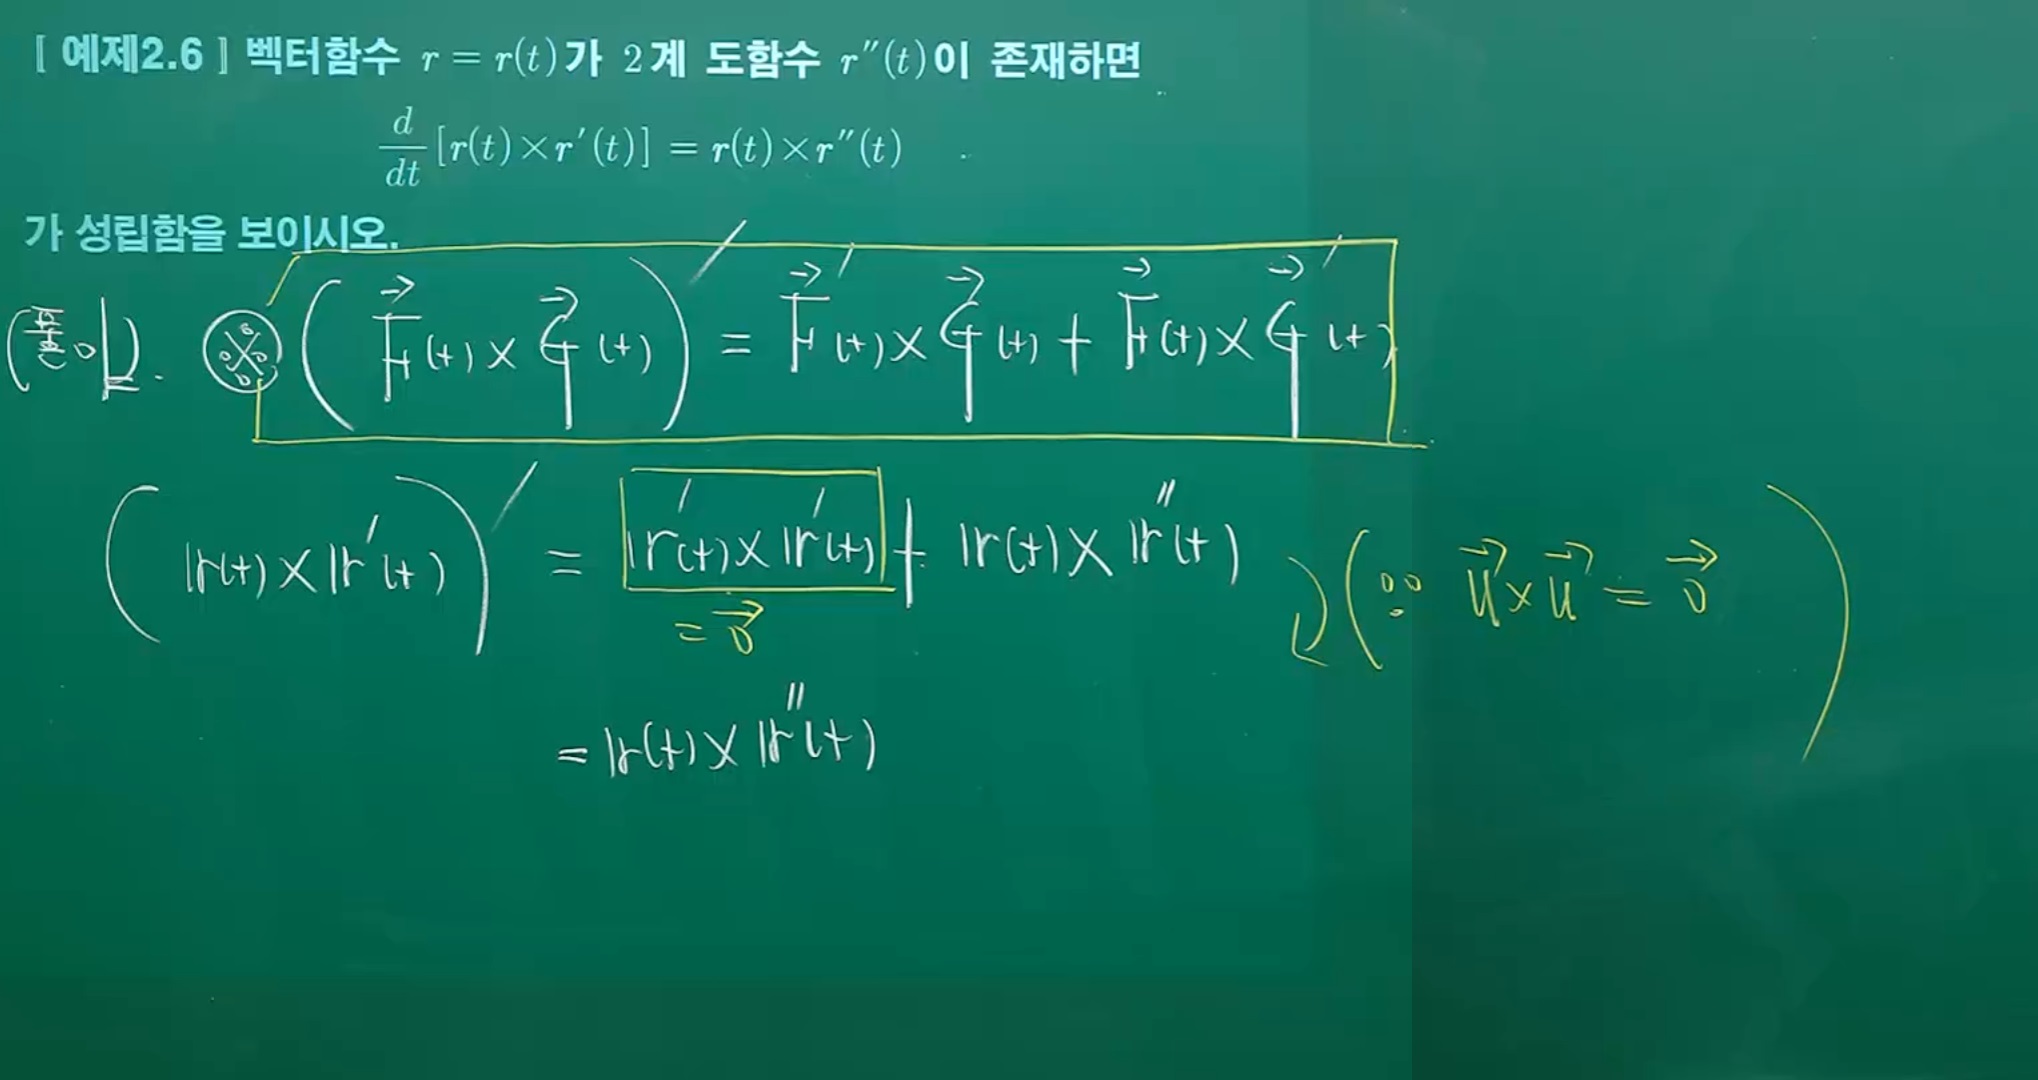 [ 예제2.6 ] 벡터함수 r = r(t)가 2계 도함수 r″(t)이 존재하면
d/dt [r(t)×r′(t)] = r(t)×r″(t)
가 성립함을 보이시오.
(풀이). ※ (F⃗(t) × G⃗(t))′ = F⃗′(t) × G⃗(t) + F⃗(t) × G⃗′(t)
(r(t) × r′(t))′ = r′(t) × r′(t) + r(t) × r″(t) (∵ u⃗ × u⃗ = 0⃗)
= 0⃗
= r(t) × r″(t)